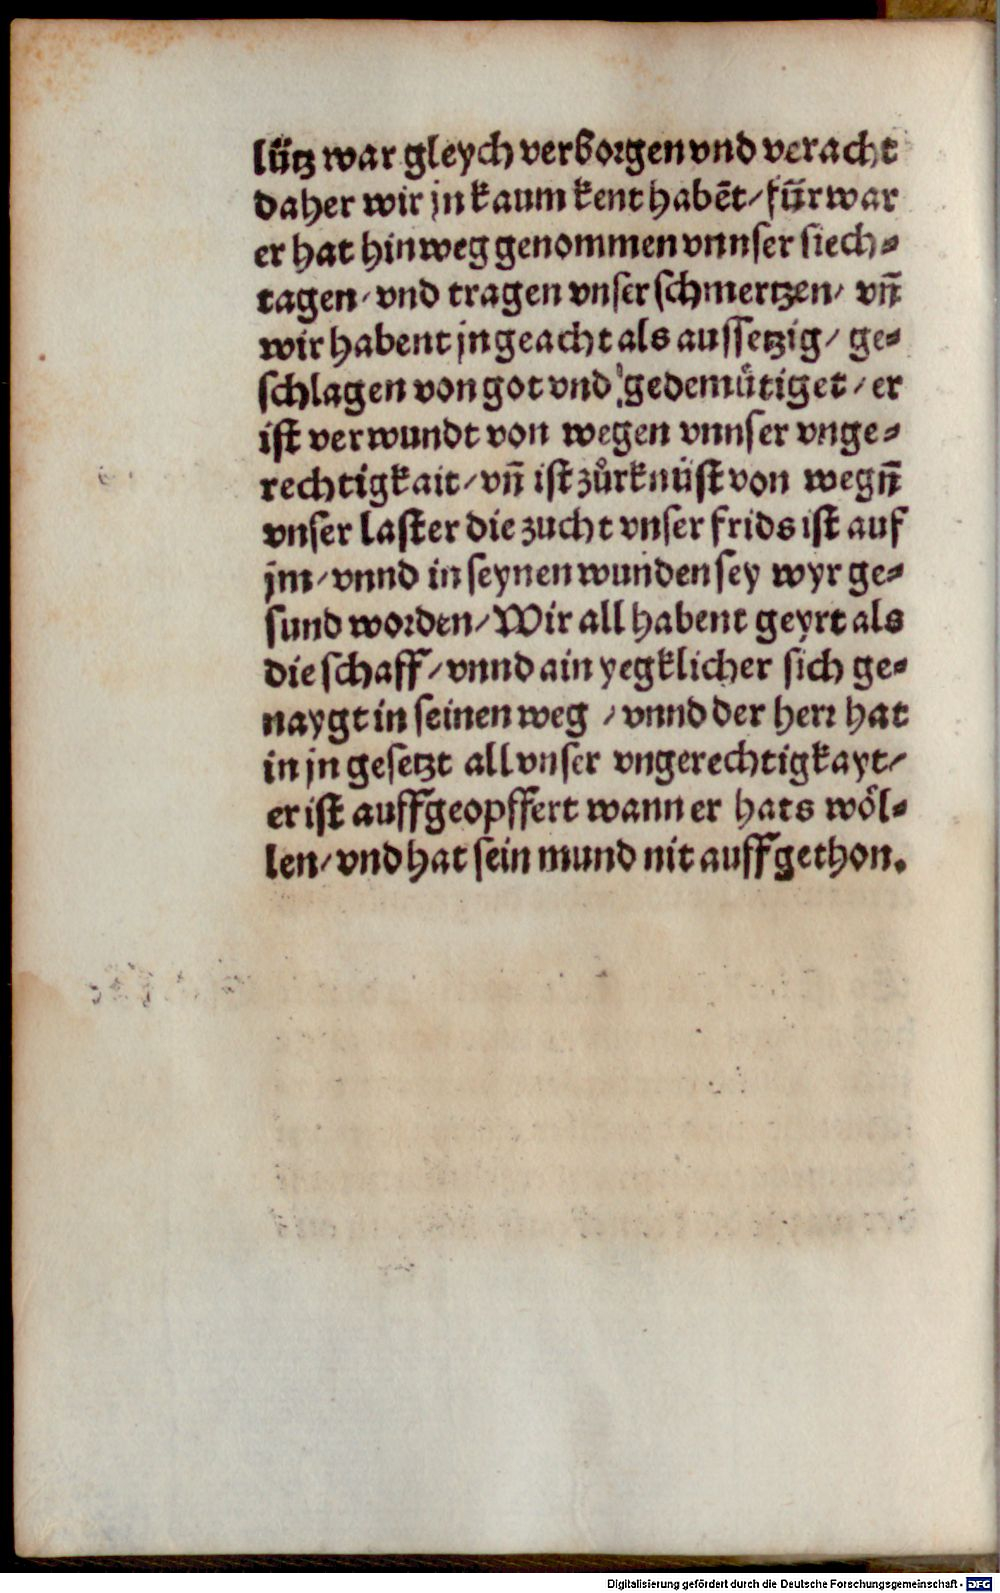 lütz war gleych verborgen vnd veracht
daher wir jn kaum kent habēt / fürwar
er hat hinweg genommen vnnser siech⸗
tagen / vnd tragen vnser schmertzen / vn̄
wir habent jn geacht als aussetzig / ge⸗
schlagen von got vnd gedemütiget / er
ist verwundt von wegen vnnser vnge⸗
rechtigkait / vn̄ ist zůrknüst von wegn̄
vnser laster die zucht vnser frids ist auf
jm / vnnd in seynen wunden sey wyr ge⸗
sund worden / Wir all habent geyrt als
die schaff / vnnd ain yegklicher sich ge⸗
naygt in seinen weg / vnnd der herr hat
in jn gesetzt all vnser vngerechtigkayt /
er ist auffgeopffert wann er hats wöl⸗
len / vnd hat sein mund nit auffgethon.
Digitalisierung gefördert durch die Deutsche Forschungsgemeinschaft - DFG